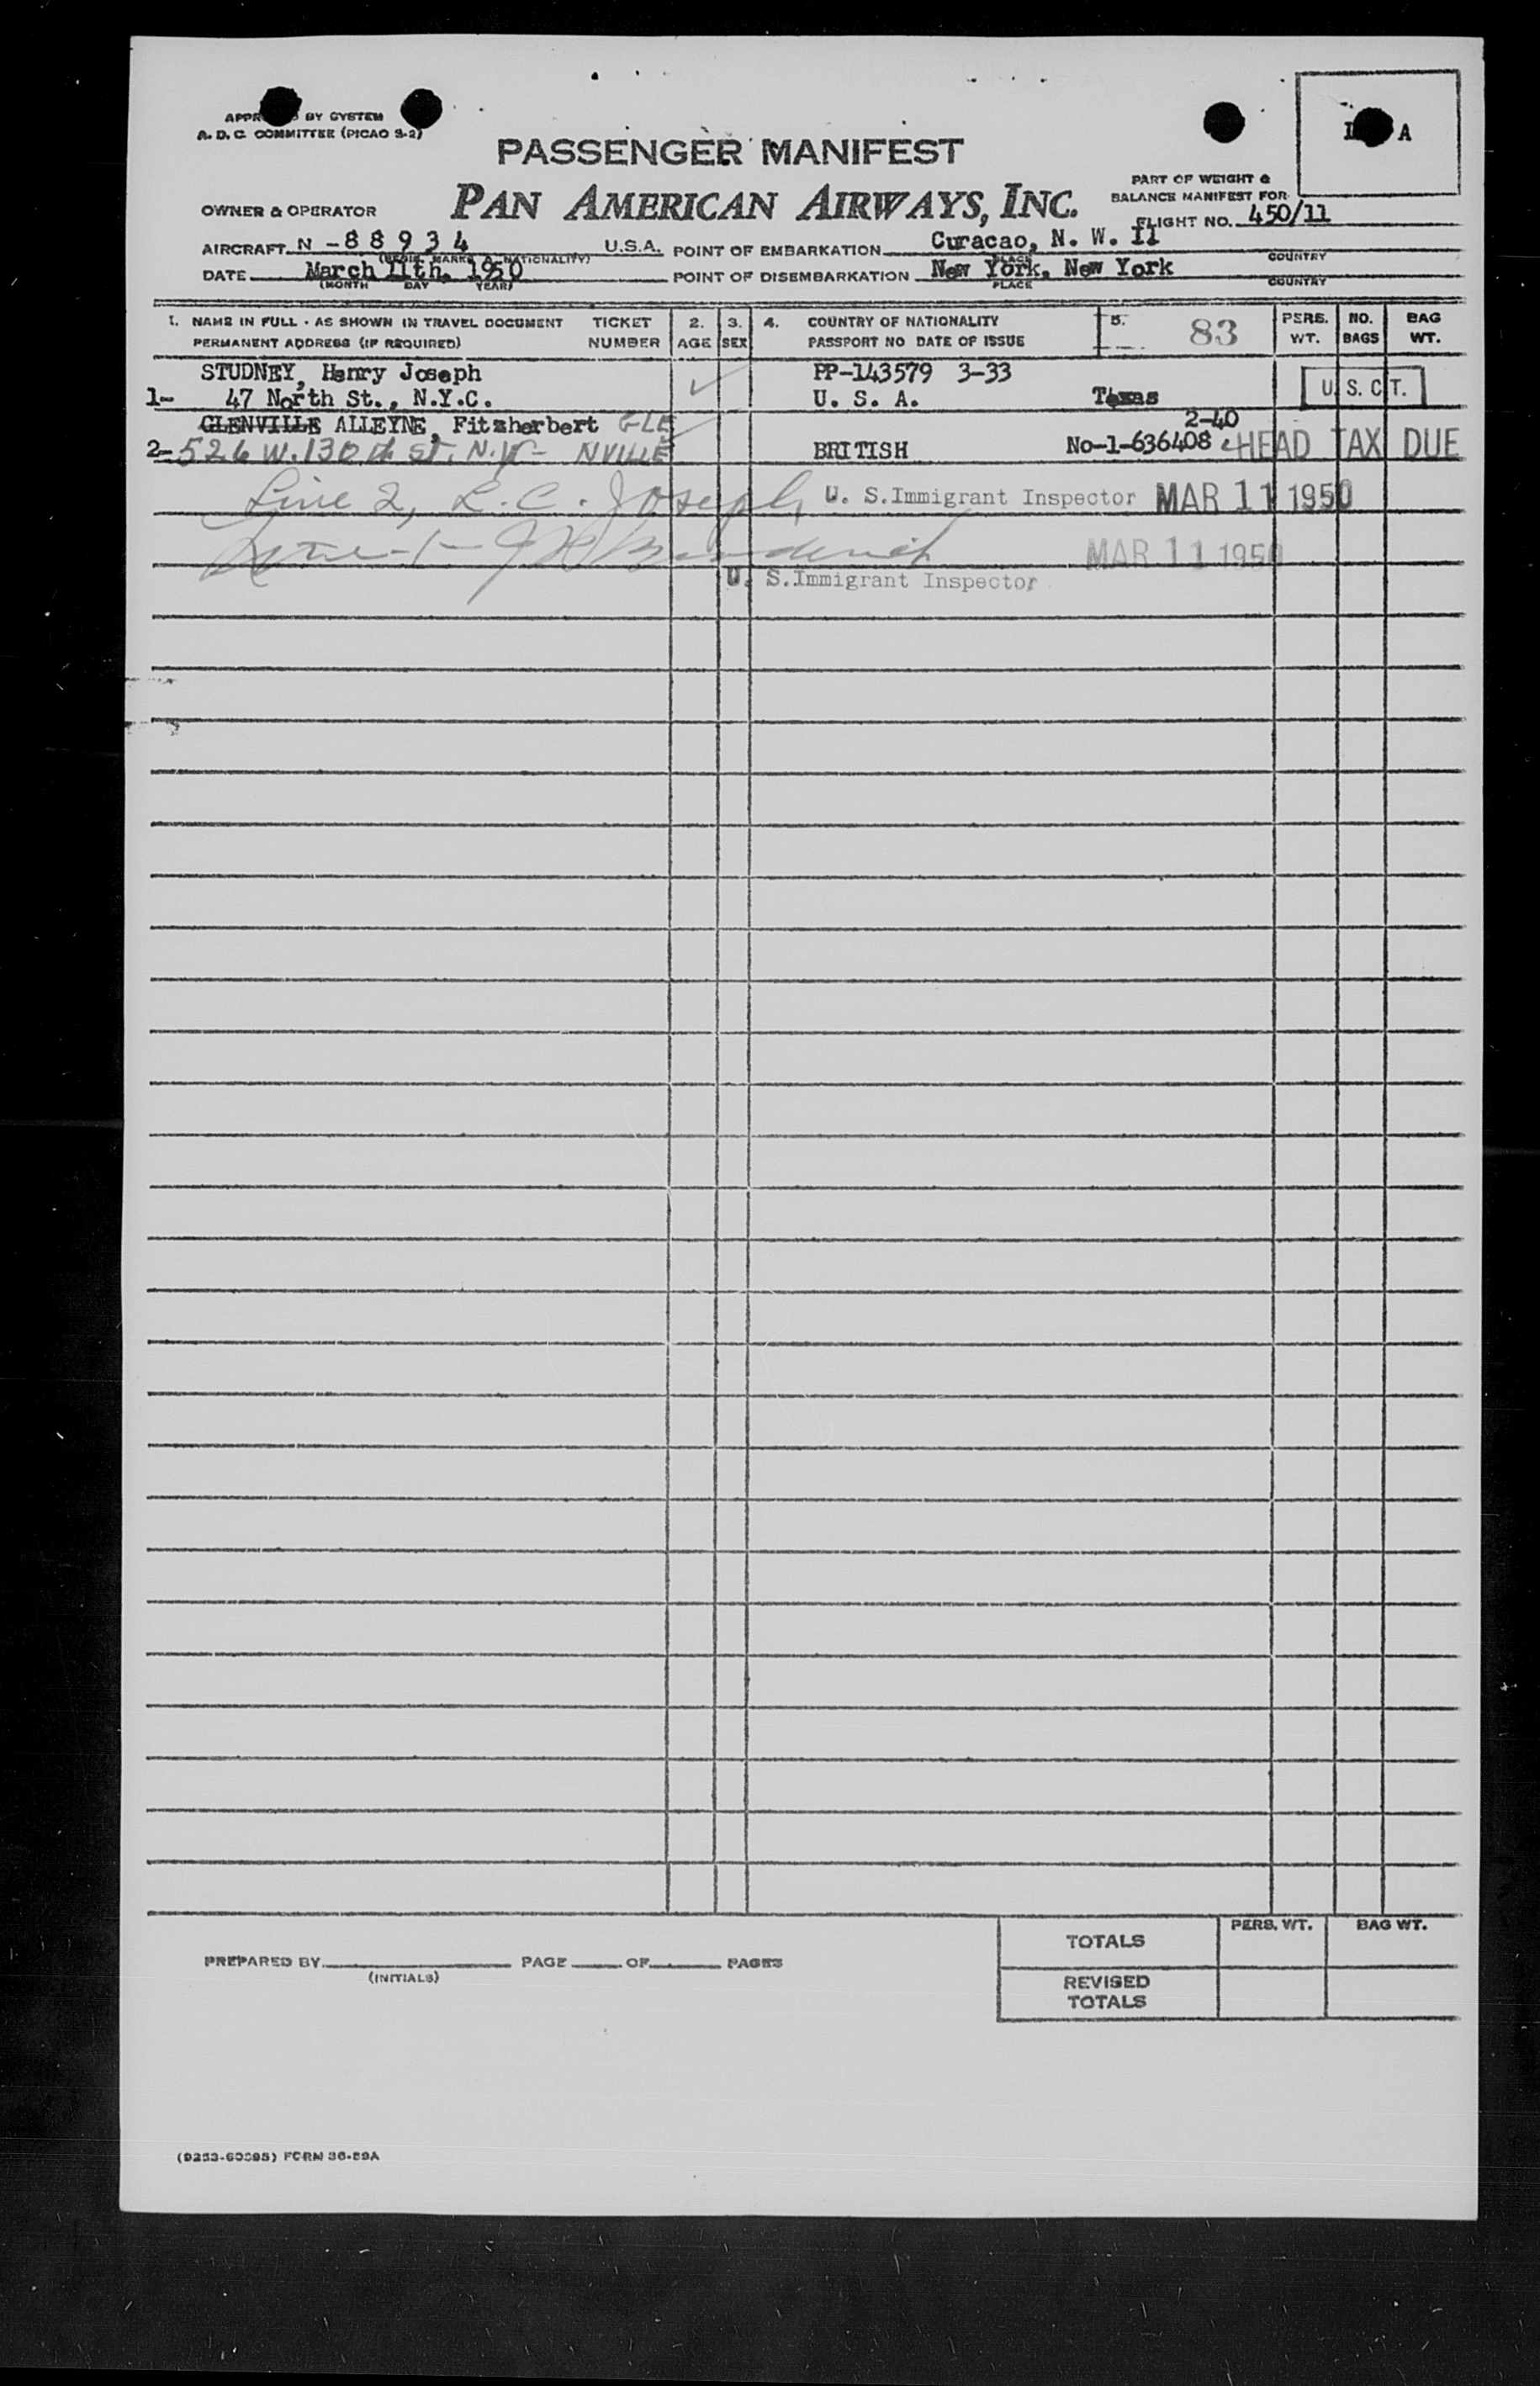 BY SYSTEM
A. D. C. COMMITTEE (PICAO 3-2)
A
PASSENGER MANIFEST
PART OF WEIGHT &
BALANCE MANIFEST FOR
OWNER & OPERATOR PAN AMERICAN AIRWAYS, INC.
FLIGHT NO. 450/11
AIRCRAFT N -88934 U.S.A. POINT OF EMBARKATION Curacao, N. W. I1
(REGIS. MARKS & NATIONALITY) PLACE COUNTRY
DATE March 11th, 1950 POINT OF DISEMBARKATION New York, New York
(MONTH DAY YEAR) PLACE COUNTRY
1. NAME IN FULL - AS SHOWN IN TRAVEL DOCUMENT TICKET 2. 3. 4. COUNTRY OF NATIONALITY 5. 83 PERS. NO. BAG
PERMANENT ADDRESS (IF REQUIRED) NUMBER AGE SEX PASSPORT NO DATE OF ISSUE WT. BAGS WT.
STUDNEY, Henry Joseph PP-143579 3-33
1- 47 North St., N.Y.C. U. S. A. Texas U. S. C T.
GLENVILLE ALLEYNE, Fitzherbert GLE 2-40
2- 526 W. 130th St. N.Y- NVILLE BRITISH No-1-636408 HEAD TAX DUE
Line 2, L. C. Joseph U. S.Immigrant Inspector MAR 11 1950
Line -1- MAR 11 1950
U. S.Immigrant Inspector
TOTALS PERS. WT. BAG WT.
PREPARED BY PAGE OF PAGES
(INITIALS)
REVISED
TOTALS
FORM 36-59A